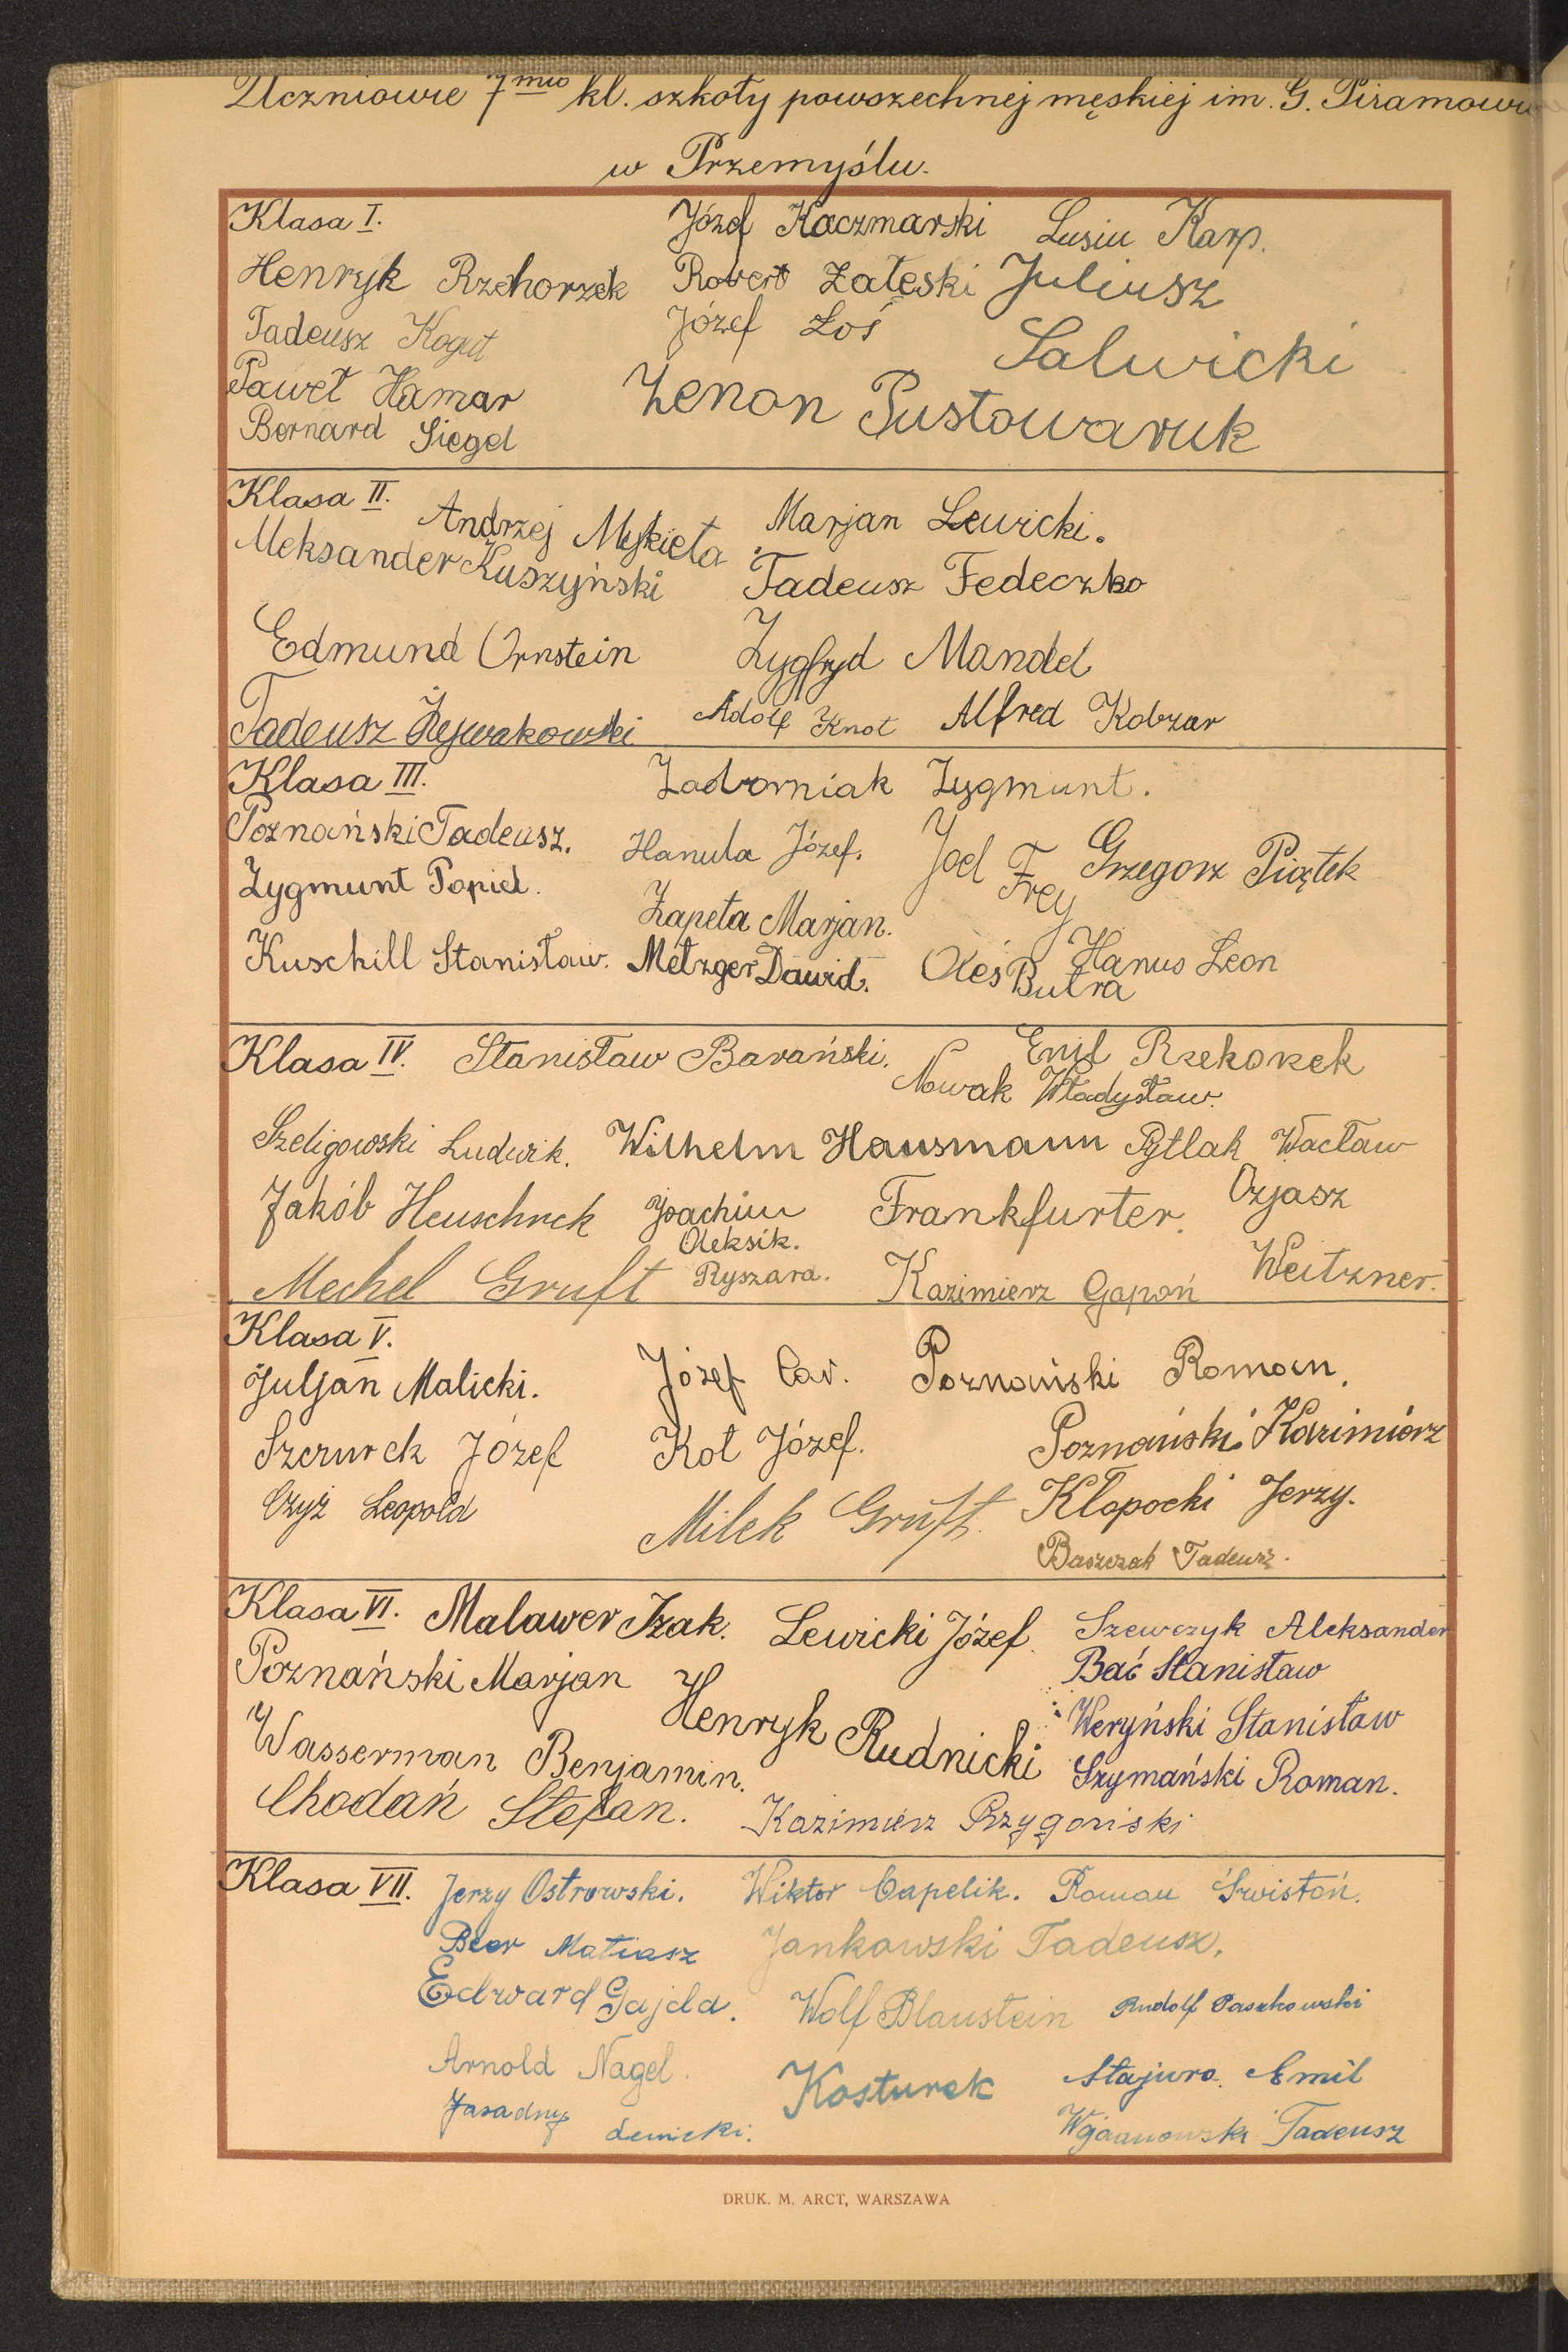 Uczniowie 7mio kl. szkoły powszechnej męskiej im. G. Piramowi
w Przemyślu.
Klasa I.
Józef Kaczmarski Lusiu Karp.
Henryk Rzehorzek Robert Załęski Juliusz
Salwicki
Tadeusz Kogut Józef Łoś
Paweł Hamar Zenon Pustowaruk
Bernard Siegel
Klasa II.
Andrzej Mykieta Marjan Lewicki.
Aleksander Kuszyński Tadeusz Fedeczko
Edmund Ornstein Zygfryd Mandel
Tadeusz Adolf Knot Alfred Kobzar
Klasa III. Zadorniak Zygmunt.
Poznański Tadeusz. Hanula Józef. Joel Frey Grzegorz Piątek
Zygmunt Popiel. Zapeta Marjan.
Kuschill Stanisław. Metzger Dawid. Oleś Butra Hanus Leon
Klasa IV. Stanisław Barański. Emil Rzehorzek
Nowak Władysław.
Szeligowski Ludwik. Wilhelm Hausmann Pytlak Wacław
Jakób Heuschrek Joachim Frankfurter. Ozjasz
Weitzner.
Oleksik.
Ryszard.
Mechel Gruft Kazimierz Gapoń
Klasa V.
Juljan Malicki. Józef Cav. Poznański Roman.
Szczurek Józef Kot Józef. Poznański Kazimierz
Czyż Leopold Milek Gruft. Kłopocki Jerzy.
Baszczak Tadeusz.
Klasa VI. Malawer Izak. Lewicki Józef. Szewczyk Aleksander
Poznański Marjan Henryk Rudnicki Bać Stanisław
Wasserman Benjamin. Weryński Stanisław
Szymański Roman.
Chodań Stefan. Kazimierz Przygoński
Klasa VII. Jerzy Ostrowski. Wiktor Capelik. Roman Świstoń.
Beer Matiasz Jankowski Tadeusz.
Edward Gajda. Wolf Blaustein Rudolf Paszkowski
Arnold Nagel. Kosturek Stajura Emil
Tadeusz
DRUK. M. ARCT, WARSZAWA